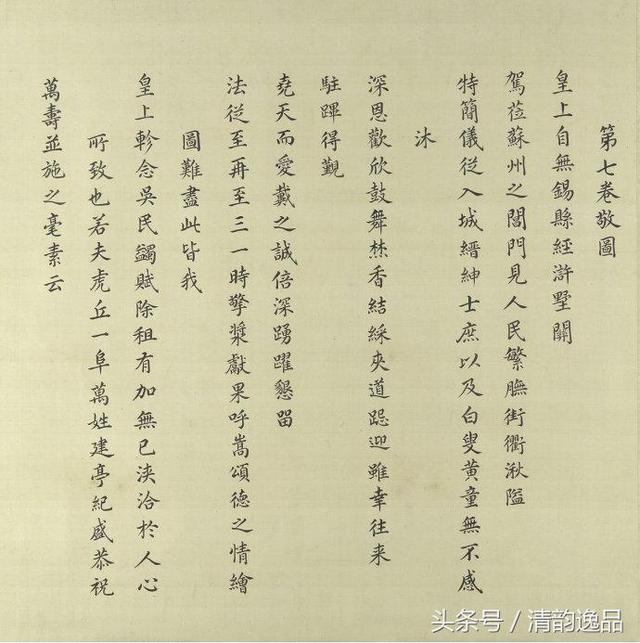 第七卷敬圖
皇上自無錫縣經滸墅關
駕莅蘇州之閶門見人民繁膴街衢湫隘
特簡儀從入城縉紳士庶以及白叟黄童無不感
沐
深恩歡欣鼓舞焚香結綵夾道跽迎雖幸往来
駐蹕得覲
堯天而愛戴之誠倍深踴躍懇畱
法從至再至三一時擎漿獻果呼嵩頌德之情繪
圖難盡此皆我
皇上軫念吳民蠲賦除租有加無已浹洽於人心
所致也若夫虎丘一阜萬姓建亭紀盛恭祝
萬壽並施之毫素云
头条号／清韵逸品